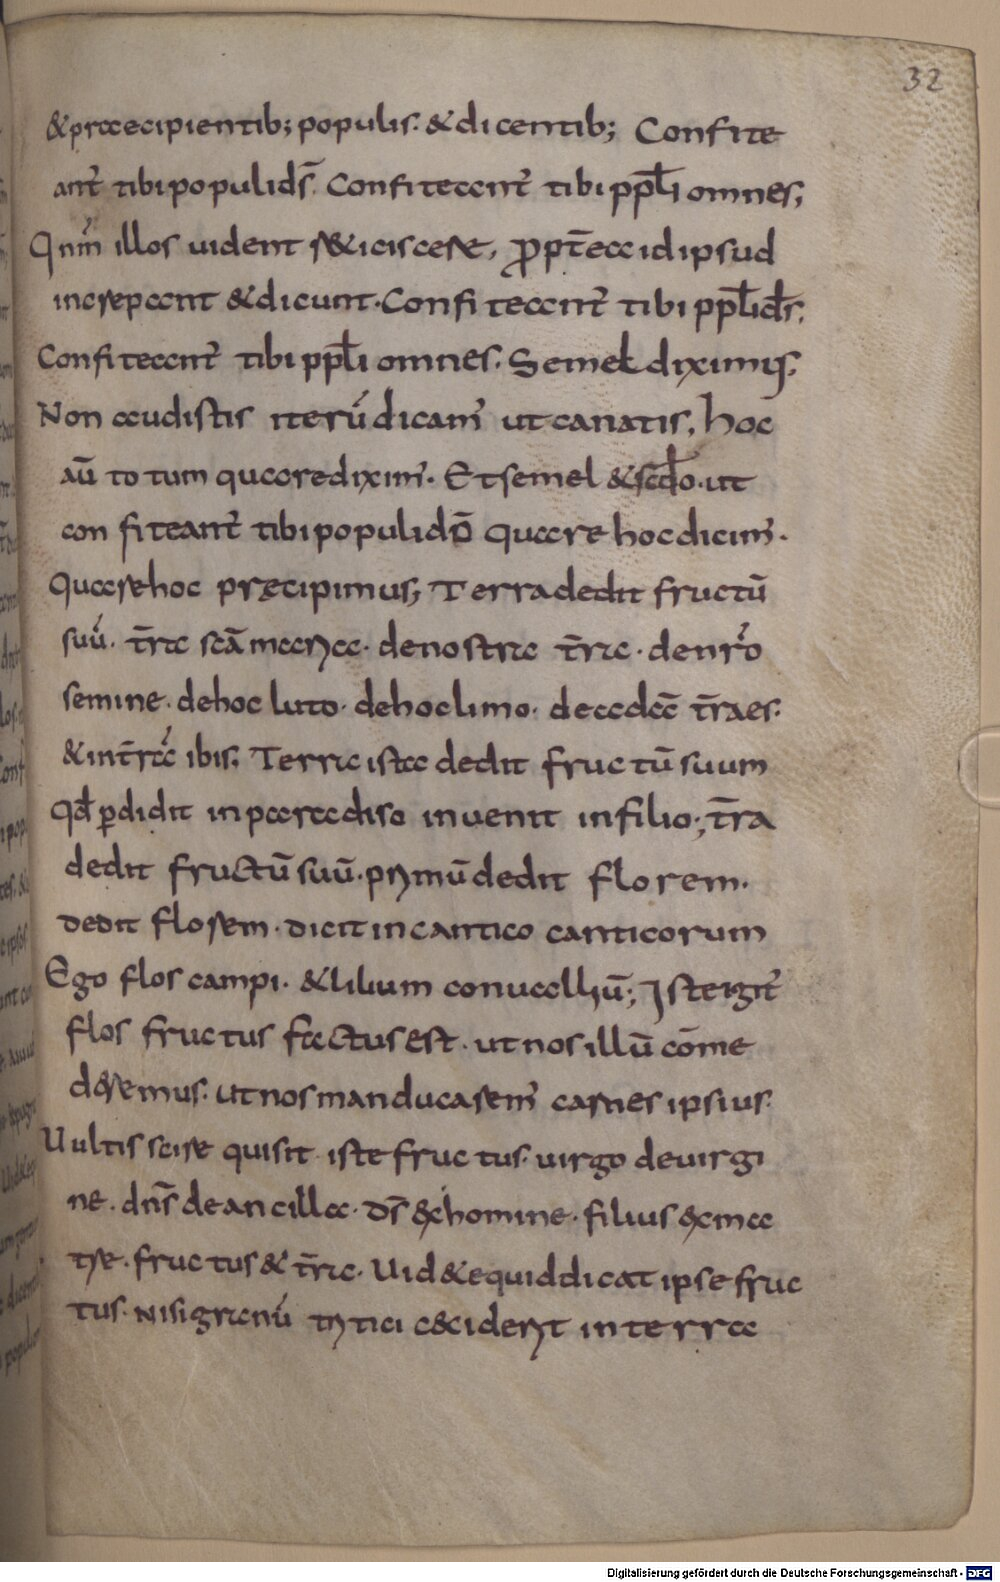 32
&praecipientib; populis. &dicentib; Confite
ant̄ tibi populi ds̄. Confiteant̄ tibi pp̄li omnes,
Qnm̄ illos uident s&icis cese, propt̄ea id ipsud
increpant &dicunt. Confiteant̄ tibi pp̄li ds̄.
Confiteant̄ tibi pp̄li omnes. Semel diximus,
Non audistis iterū dicam̄ ut canatis, hoc
aū totum quare dixim̄. Et semel &scd̄o. ut
confiteant̄ tibi populi dō quare hoc dicim̄.
Quare hoc pręcipimus; Terra dedit fructū
suū. tr̄a scā maria. de nostra tr̄a. de nr̄o
semine. de hoc luto. de hoc limo. de adā tr̄a es.
&in tr̄ā ibis; Terra ista dedit fructū suum
Qd̄ ꝑdidit in paradiso inuenit in filio; tr̄a
dedit fructū suū. primū dedit florem.
dedit florem. dicit in cantico canticorum
Ego flos campi. &lilium conualliū; Iste igit̄
flos fructus factus est. ut nos illū cōme
deremus. ut nos manducarem̄ carnes ipsius.
Uultis scire quis sit iste fructus. uirgo de uirgi
ne. dns̄ de ancilla. ds̄ ex homine. filius ex ma
tre. fructus & tr̄a. Uid&e quid dicat ipse fruc
tus. Nisi granū tritici c&iderit in terra
Digitalisierung gefördert durch die Deutsche Forschungsgemeinschaft - DFG